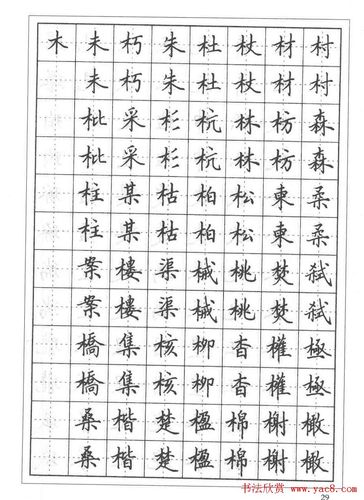 木未朽朱杜杖材村
未朽朱杜杖材村
枇采杉杭林枋森
枇采杉杭林枋森
柱某枯柏松東桑
柱某枯柏松東桑
案樓渠械桃焚弒
案樓渠械桃焚弒
橋集核柳杳權極
橋集核柳杳權極
桑楷楚楹棉榭橄
桑楷楚楹棉榭橄
书法欣赏 www.yac8.com
29